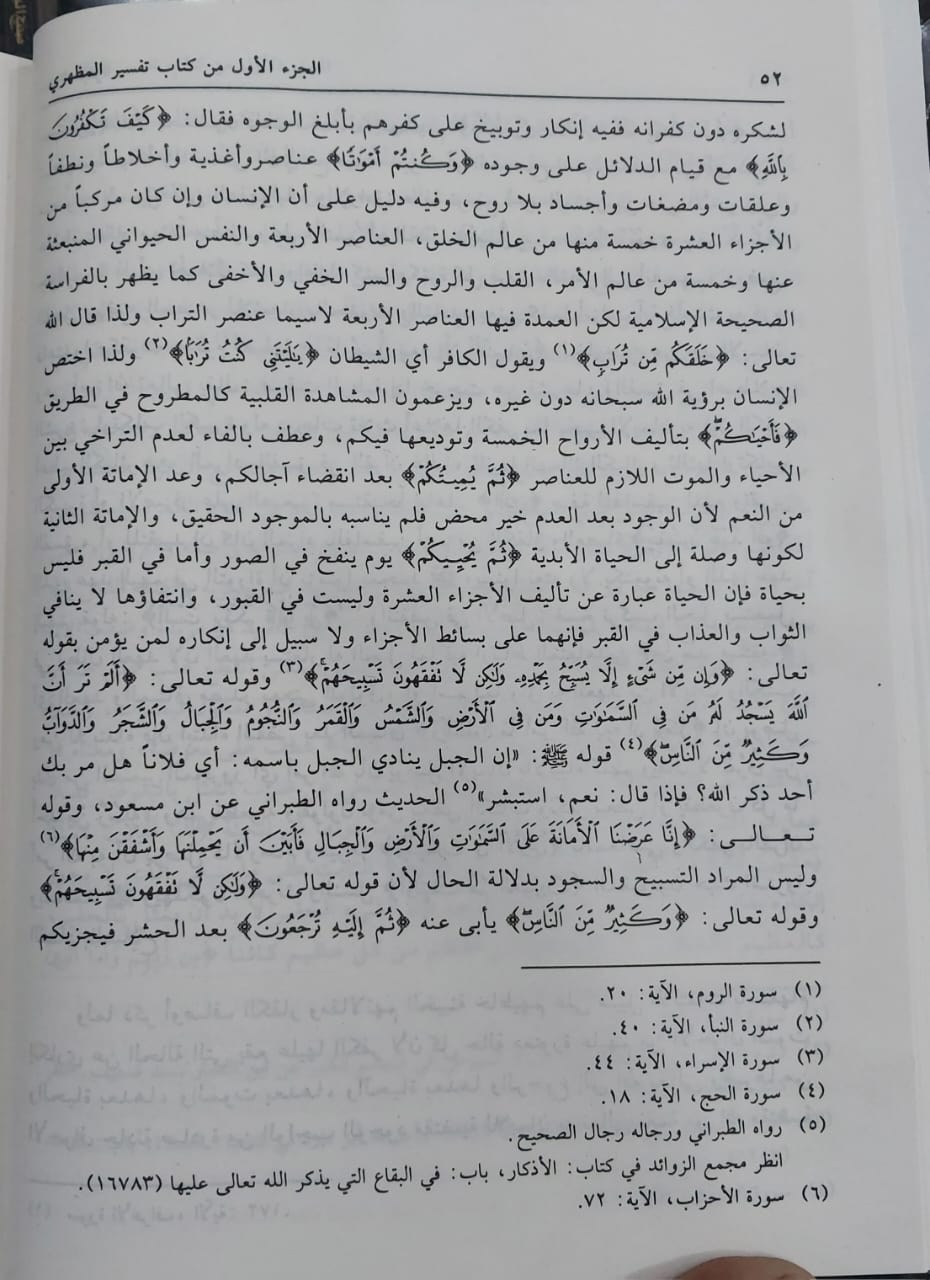 ٥٢ الجزء الأول من كتاب تفسير المظهري
لشكره دون كفرانه ففيه إنكار وتوبيخ على كفرهم بأبلغ الوجوه فقال: ﴿كَيْفَ تَكْفُرُونَ
بِاللَّهِ﴾ مع قيام الدلائل على وجوده ﴿وَكُنتُمْ أَمْوَٰتًا﴾ عناصر وأغذية وأخلاطاً ونطفاً
وعلقات ومضغات وأجساد بلا روح، وفيه دليل على أن الإنسان وإن كان مركباً من
الأجزاء العشرة خمسة منها من عالم الخلق، العناصر الأربعة والنفس الحيواني المنبعثة
عنها وخمسة من عالم الأمر، القلب والروح والسر الخفي والأخفى كما يظهر بالفراسة
الصحيحة الإسلامية لكن العمدة فيها العناصر الأربعة لاسيما عنصر التراب ولذا قال الله
تعالى: ﴿خَلَقَكُم مِّن تُرَابٍ﴾(١) ويقول الكافر أي الشيطان ﴿يَٰلَيْتَنِى كُنتُ تُرَٰبًا﴾(٢) ولذا اختص
الإنسان برؤية الله سبحانه دون غيره، ويزعمون المشاهدة القلبية كالمطروح في الطريق
﴿فَأَحْيَٰكُمْ﴾ بتأليف الأرواح الخمسة وتوديعها فيكم، وعطف بالفاء لعدم التراخي بين
الأحياء والموت اللازم للعناصر ﴿ثُمَّ يُمِيتُكُمْ﴾ بعد انقضاء آجالكم، وعد الإماتة الأولى
من النعم لأن الوجود بعد العدم خير محض فلم يناسبه بالموجود الحقيق، والإماتة الثانية
لكونها وصلة إلى الحياة الأبدية ﴿ثُمَّ يُحْيِيكُمْ﴾ يوم ينفخ في الصور وأما في القبر فليس
بحياة فإن الحياة عبارة عن تأليف الأجزاء العشرة وليست في القبور، وانتفاؤها لا ينافي
الثواب والعذاب في القبر فإنهما على بسائط الأجزاء ولا سبيل إلى إنكاره لمن يؤمن بقوله
تعالى: ﴿وَإِن مِّن شَىْءٍ إِلَّا يُسَبِّحُ بِحَمْدِهِۦ وَلَٰكِن لَّا تَفْقَهُونَ تَسْبِيحَهُمْ﴾(٣) وقوله تعالى: ﴿أَلَمْ تَرَ أَنَّ
اللَّهَ يَسْجُدُ لَهُۥ مَن فِى السَّمَٰوَٰتِ وَمَن فِى الْأَرْضِ وَالشَّمْسُ وَالْقَمَرُ وَالنُّجُومُ وَالْجِبَالُ وَالشَّجَرُ وَالدَّوَآبُّ
وَكَثِيرٌ مِّنَ النَّاسِ﴾(٤) قوله ﷺ: «إن الجبل ينادي الجبل باسمه: أي فلاناً هل مر بك
أحد ذكر الله؟ فإذا قال: نعم، استبشر»(٥) الحديث رواه الطبراني عن ابن مسعود، وقوله
تعالى: ﴿إِنَّا عَرَضْنَا الْأَمَانَةَ عَلَى السَّمَٰوَٰتِ وَالْأَرْضِ وَالْجِبَالِ فَأَبَيْنَ أَن يَحْمِلْنَهَا وَأَشْفَقْنَ مِنْهَا﴾(٦)
وليس المراد التسبيح والسجود بدلالة الحال لأن قوله تعالى: ﴿وَلَٰكِن لَّا تَفْقَهُونَ تَسْبِيحَهُمْ﴾
وقوله تعالى: ﴿وَكَثِيرٌ مِّنَ النَّاسِ﴾ يأبى عنه ﴿ثُمَّ إِلَيْهِ تُرْجَعُونَ﴾ بعد الحشر فيجزيكم
(١) سورة الروم، الآية: ٢٠.
(٢) سورة النبأ، الآية: ٤٠.
(٣) سورة الإسراء، الآية: ٤٤.
(٤) سورة الحج، الآية: ١٨.
(٥) رواه الطبراني ورجاله رجال الصحيح.
انظر مجمع الزوائد في كتاب: الأذكار، باب: في البقاع التي يذكر الله تعالى عليها (١٦٧٨٣).
(٦) سورة الأحزاب، الآية: ٧٢.